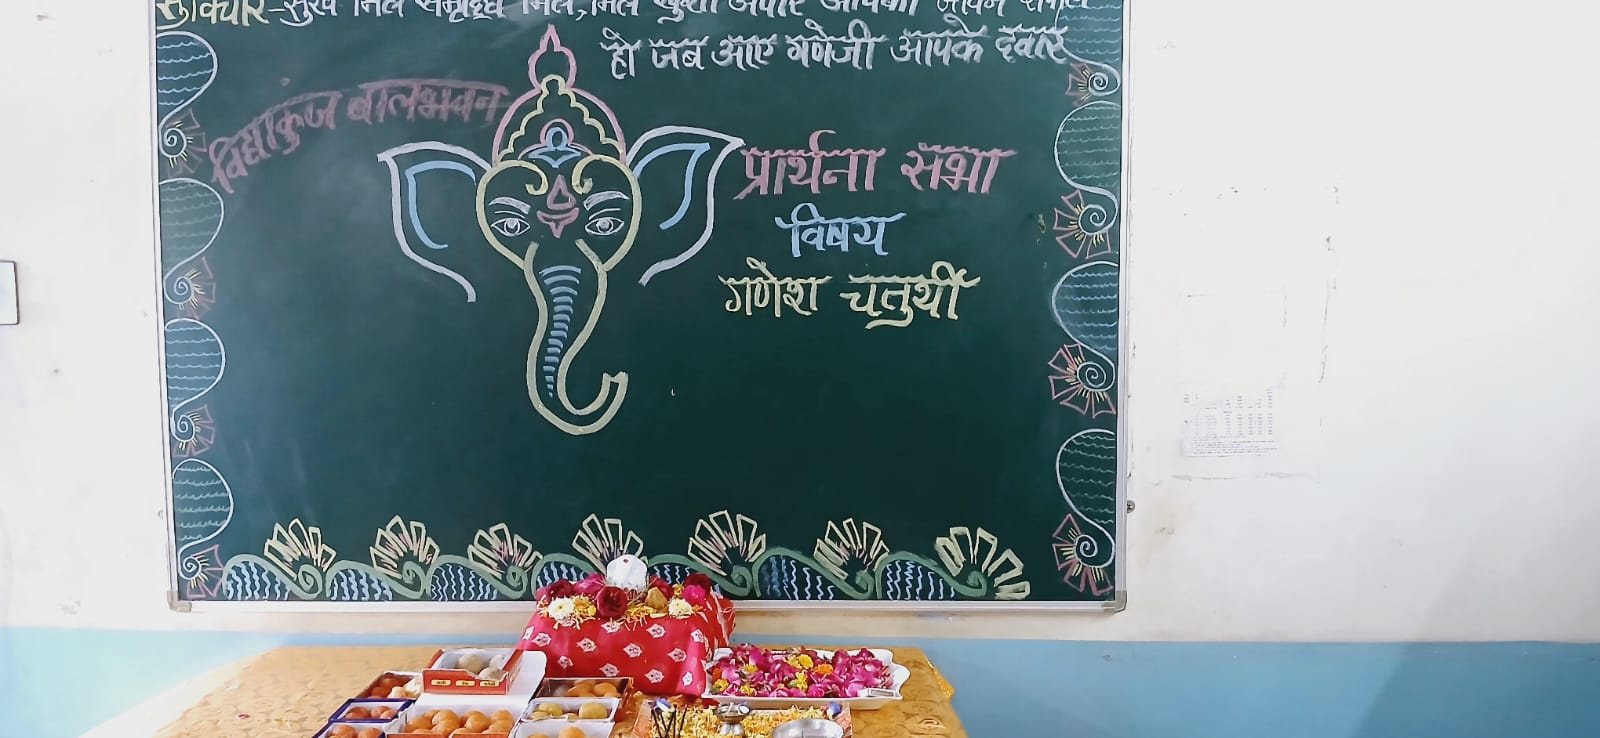 सुविचार-सुख मिले समृद्धि मिले, मिले खुशी अपार आपका जीवन सफल
हो जब आए गणेजी आपके द्वार
विद्याकुंज बालभवन
प्रार्थना सभा
विषय
गणेश चतुर्थी